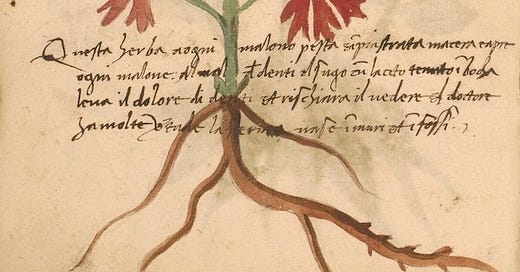 Questa herba aogni malono pesta īpiastrata macera e apre
ogni malone. al mal đ denti el sugo cū laceto tenuto ī boca
leva il dolore di denti et rischiara il vedere el doctore
ha molte
nase ī muri et ī fossi.